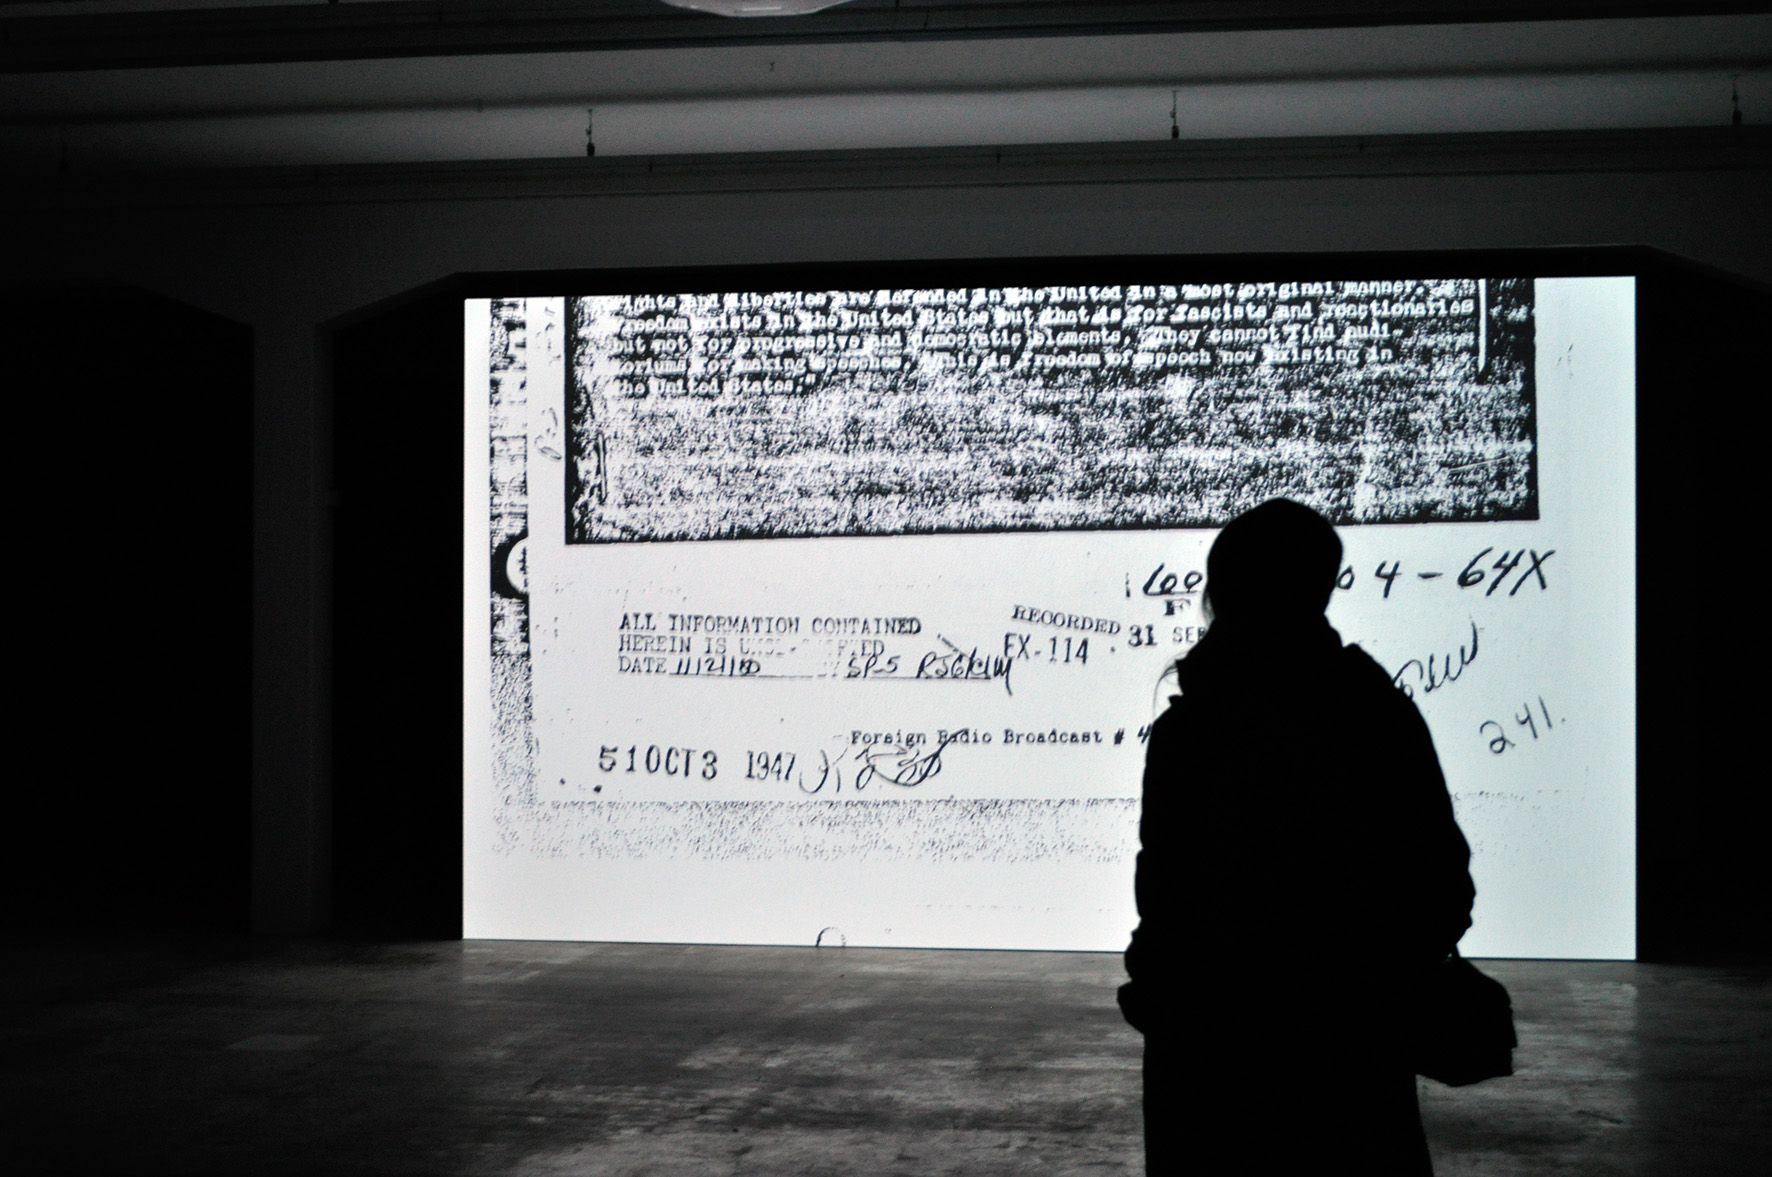 ights and liberties are defended in the United in a most original manner.
reedom exists in the United States but that is for fascists and reactionaries
but not for progressive and democratic elements. They cannot find audi-
toriums for making speeches. This is freedom of speech now existing in
the United States."
4 - 64X
ALL INFORMATION CONTAINED
HEREIN IS
DATE SP-5
RECORDED
EX-114 . 31 SEP
241.
Foreign Radio Broadcast # 4
51 OCT 3 1947